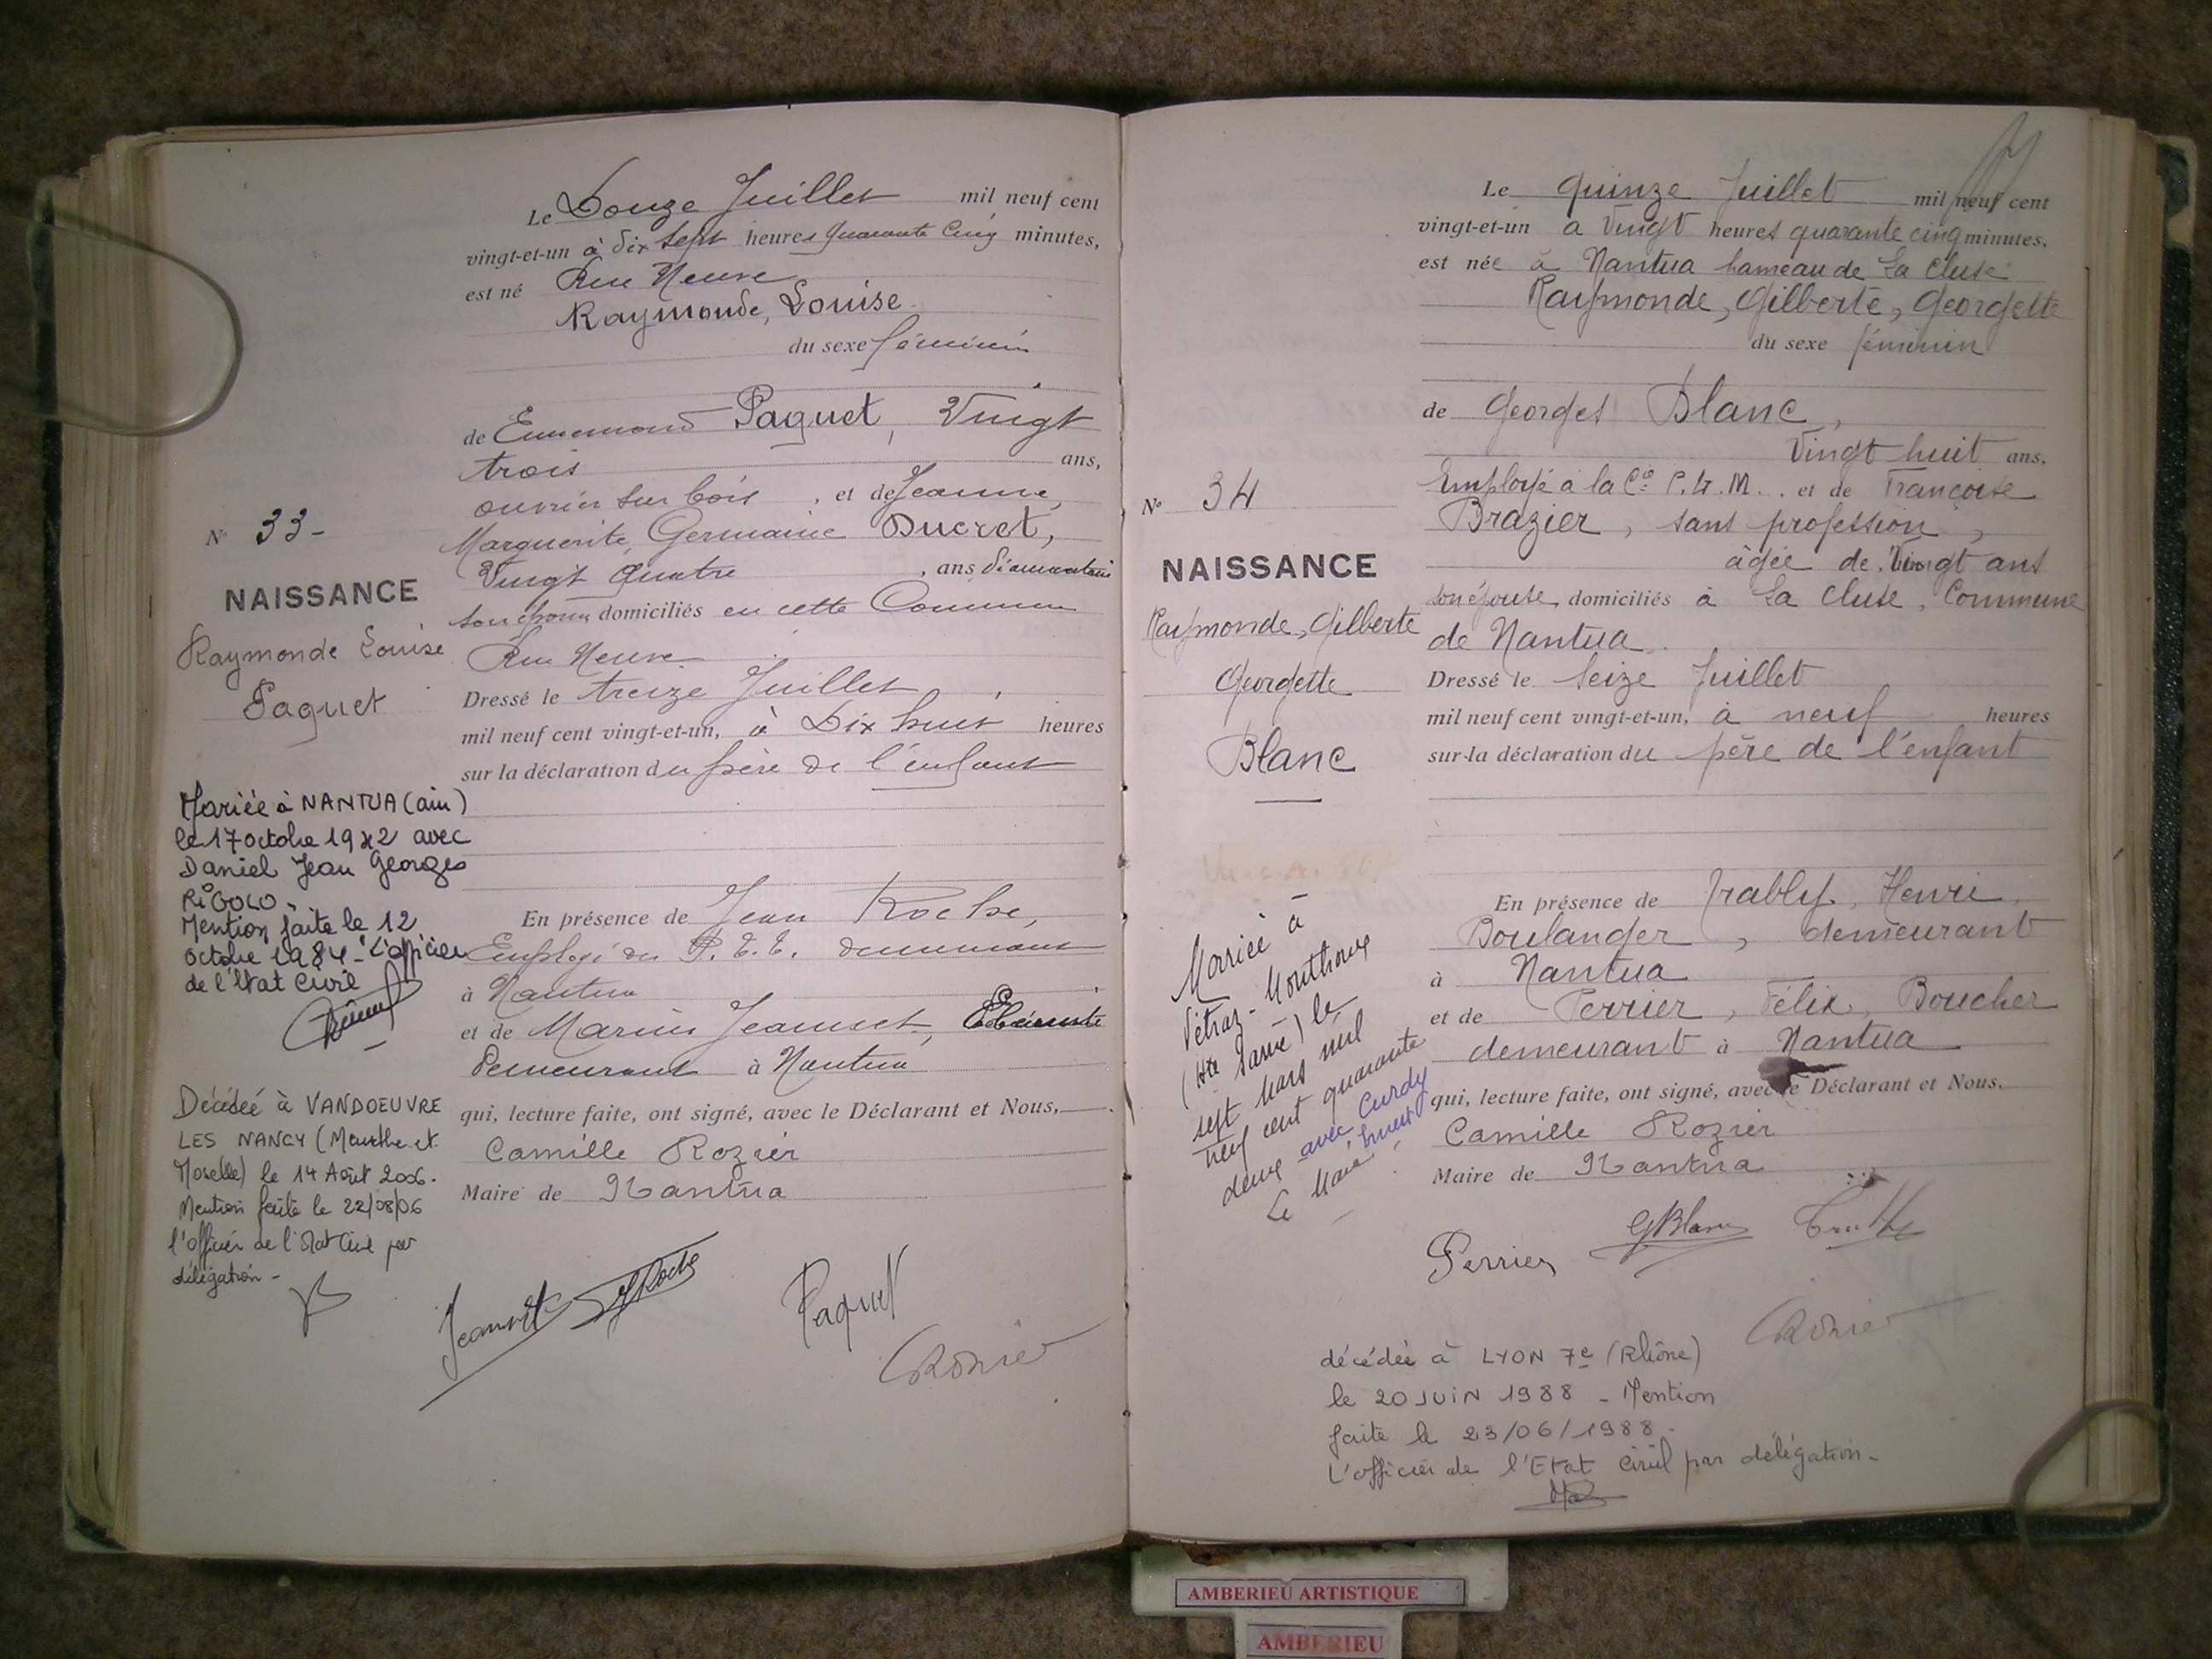 Le Douze Juillet mil neuf cent
vingt-et-un à dix sept heures quarante cinq minutes,
est né Rue Neuve
Raymonde, Louise
du sexe féminin
de Ennemond Paquet, Vingt
trois ans,
ouvrier sur bois, et de Jeanne,
Marguerite, Germaine Ducret,
Vingt quatre, ans, diamantaire
son épouse domiciliés en cette Commune
Rue Neuve
Dressé le treize Juillet,
mil neuf cent vingt-et-un, à Dix huit heures
sur la déclaration du père de l'enfant
En présence de Jean Roche,
Employé des P.T.T. demeurant
à Nantua
et de Marius Jeannet, Ébéniste
Demeurant à Nantua
qui, lecture faite, ont signé, avec le Déclarant et Nous,
Camille Rozier
Maire de Nantua
Jeannet JRoche Paquet
CRozier
N° 33-
NAISSANCE
Raymonde Louise
Paquet
Mariée à NANTUA (ain)
le 17 octobre 1942 avec
Daniel Jean Georges
RIGOLO.
Mention faite le 12
octobre 1984 - L'officier
de l'Etat Civil
Décédée à VANDOEUVRE
LES NANCY (Meurthe et
Moselle) le 14 Août 2006.
Mention faite le 22/08/06
l'officier de l'Etat Civil par
délégation -
Le quinze Juillet mil neuf cent
vingt-et-un à vingt heures quarante cinq minutes,
est née à Nantua hameau de La Cluse
Raymonde, Gilberte, Georgette
du sexe féminin
de Georges Blanc,
Vingt huit ans,
Employé à la Cie P.L.M., et de Françoise
Brazier, sans profession,
âgée de Vingt ans
son épouse, domiciliés à La Cluse, Commune
de Nantua.
Dressé le Seize Juillet
mil neuf cent vingt-et-un, à neuf heures
sur la déclaration du père de l'enfant
En présence de Henri,
Boulanger, demeurant
à Nantua
et de Perrier, Félix, Boucher
demeurant à Nantua
qui, lecture faite, ont signé, avec le Déclarant et Nous,
Camille Rozier
Maire de Nantua
Perrier GBlanc
CRozier
N° 34
NAISSANCE
Raymonde, Gilberte
Georgette
Blanc
Mariée à
Vétraz-Monthoux
(Hte Savoie) le
sept Mars mil
neuf cent quarante
deux avec Curdy
Le Maire
décédée à LYON 7e (Rhône)
le 20 JUIN 1988 - Mention
faite le 23/06/1988.
L'officier de l'Etat Civil par délégation -
AMBERIEU ARTISTIQUE
AMBERIEU